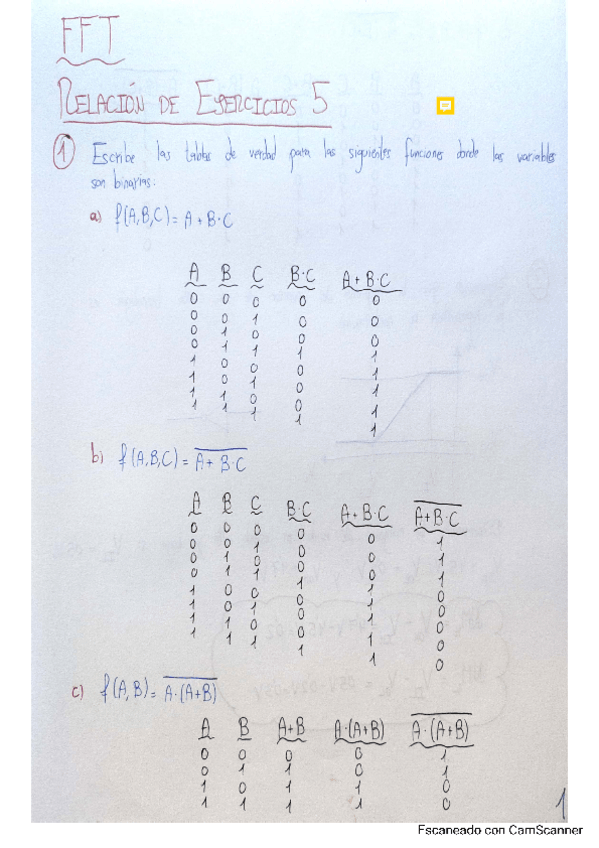 FFT
RELACIÓN DE EJERCICIOS 5
1 Escribe las tablas de verdad para las siguientes funciones donde las variables
son binarias:
a) f(A,B,C) = A + B·C
A B C B·C A+B·C
0 0 0 0 0
0 0 1 0 0
0 1 0 0 0
0 1 1 1 1
1 0 0 0 1
1 0 1 0 1
1 1 0 0 1
1 1 1 1 1
b) f(A,B,C) = \overline{A + B·C}
A B C B·C A+B·C \overline{A+B·C}
0 0 0 0 0 1
0 0 1 0 0 1
0 1 0 0 0 1
0 1 1 1 1 0
1 0 0 0 1 0
1 0 1 0 1 0
1 1 0 0 1 0
1 1 1 1 1 0
c) f(A,B) = \overline{A·(A+B)}
A B A+B A·(A+B) \overline{A·(A+B)}
0 0 0 0 1
0 1 1 0 1
1 0 1 1 0
1 1 1 1 0
1
Escaneado con CamScanner